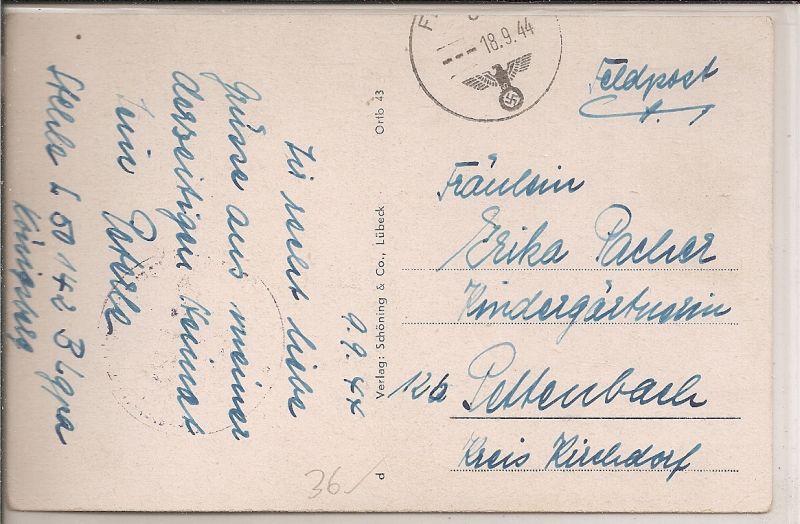 18.9.44
Feldpost
Fräulein
Erika Pacher
Kindergärtnerin
12b Pettenbach
Kreis Kirchdorf
Verlag: Schöning & Co., Lübeck
Ortb 43
d
9.9.44
Dir recht liebe
Grüsse aus meiner
derzeitigen Heimat
Dein
L 50142 B Lgpa
Königsberg
36